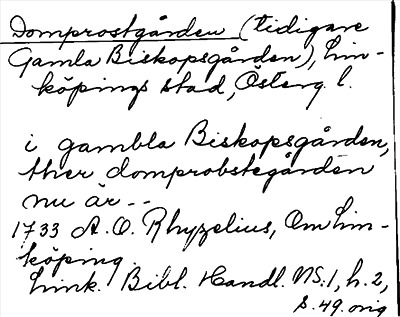 Domprostgården (tidigare
Gamla Biskopsgården), Lin-
köpings stad, Österg. l.
i gambla Biskopsgården,
ther domprobstegården
nu är--
1733 A. O. Rhyzelius, Om Lin-
köping.
Link. Bibl. Handl. NS. 1, h. 2,
s. 49. orig